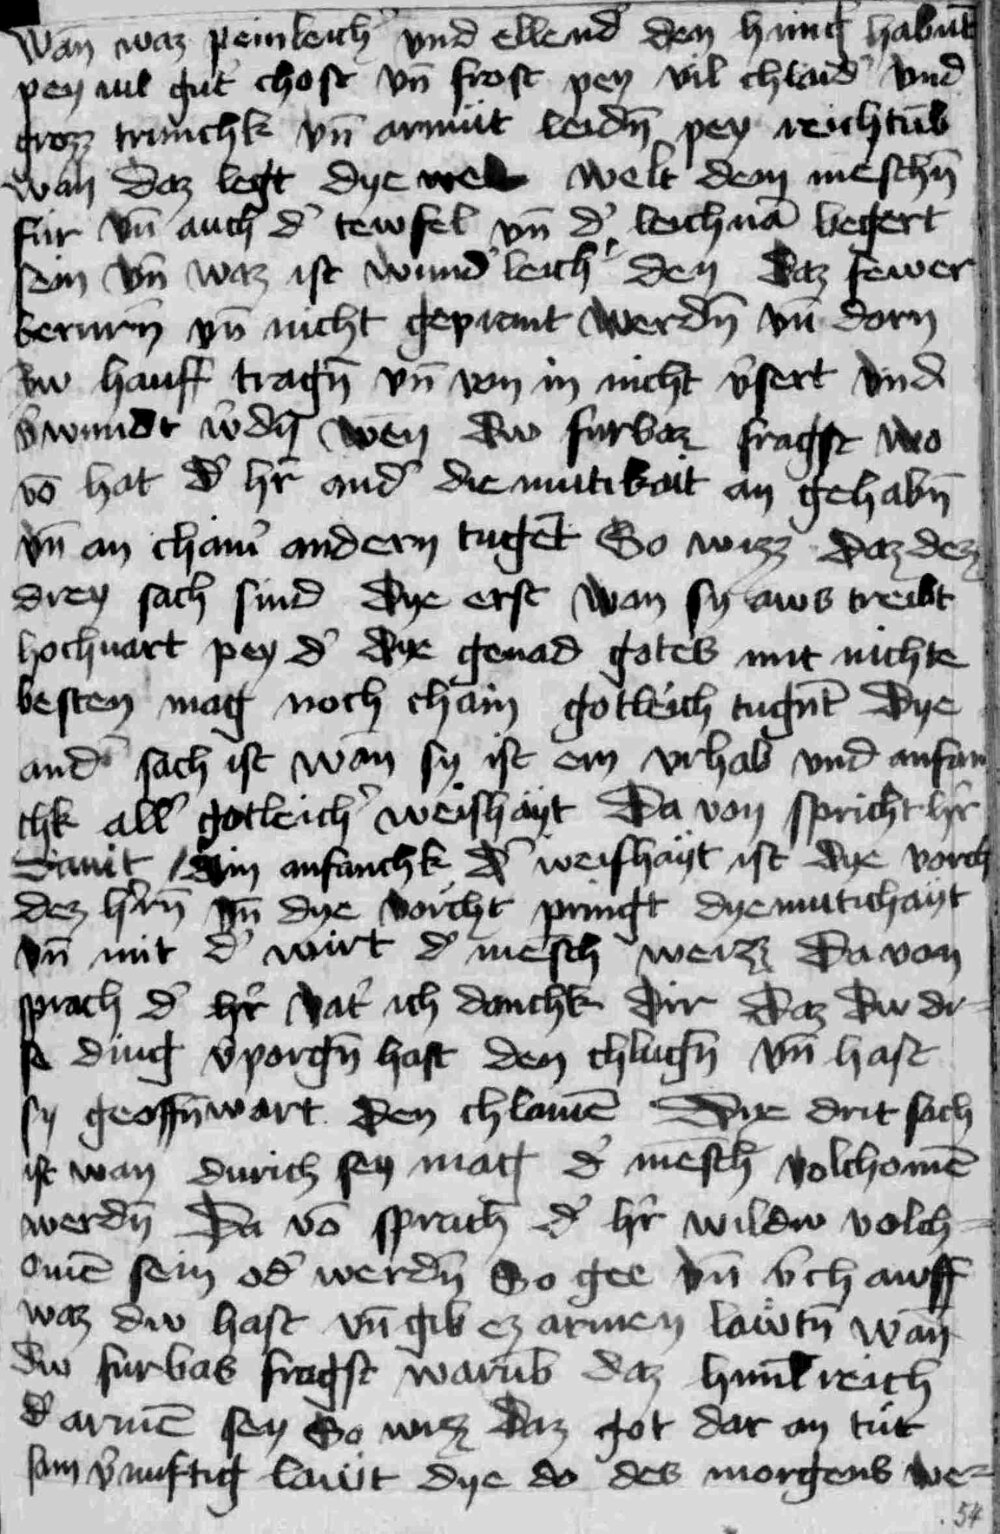 Wan waz peinleich' vnd ellend' den hung' habñt
pey uil gut' chost vñ frost pey vil chlaid' vnd
grozz trinchk vñ armüt leidñ pey reichtūb
wan daz legt dye wel welt dem mēschñ
für vñ auch d' tewfel vñ d' leichnā begert
sein vñ waz ist wund'leich' den daz fewer
berurñ vñ nicht geprant werdñ vñ dorn
ze hauff tragñ vñ von in nicht v'sert vnd
v'wundt w'dñ wen dw furbaz fragst wo
vō hat d' hr' and' diemutikait an gehabñ
vñ an chaim' andern tugēt So wizz daz dez
drey sach sind dye erst wan sy aws treibt
hochuart pey d' dye genad gotes mit nichte
besten mag noch chain gotleich tugñt dye
and' sach ist wan sy ist ein vrhab vnd anfan
chk all' gotleich' weishayt Da von spricht hr'
Dauit Ain anfanchk d' weishayt ist dye vorch
dez hr'ñ vñ dye vorcht pringt dyemutichayt
vñ mit d' wirt d' mēsch weizz Da von
sprach d' hr' vat' ich danchk dir daz dw di=
se ding v'porgñ hast den chlugñ vñ hast
sy geoffñwart den chlainē Dye drit sach
ist wan durich sey mag d' mēsch volchomē
werdñ Da vō sprach d' hr' wildw volch=
omē sein od' werdñ So gee vñ v'ch awff
waz dw hast vñ gib ez armen läwtñ Wan
dw furbas fragst warūb daz himlreich
d' armē sey So wizz daz got dar an tüt
sam v'nuftig läwt dye do des morgens wer=
54